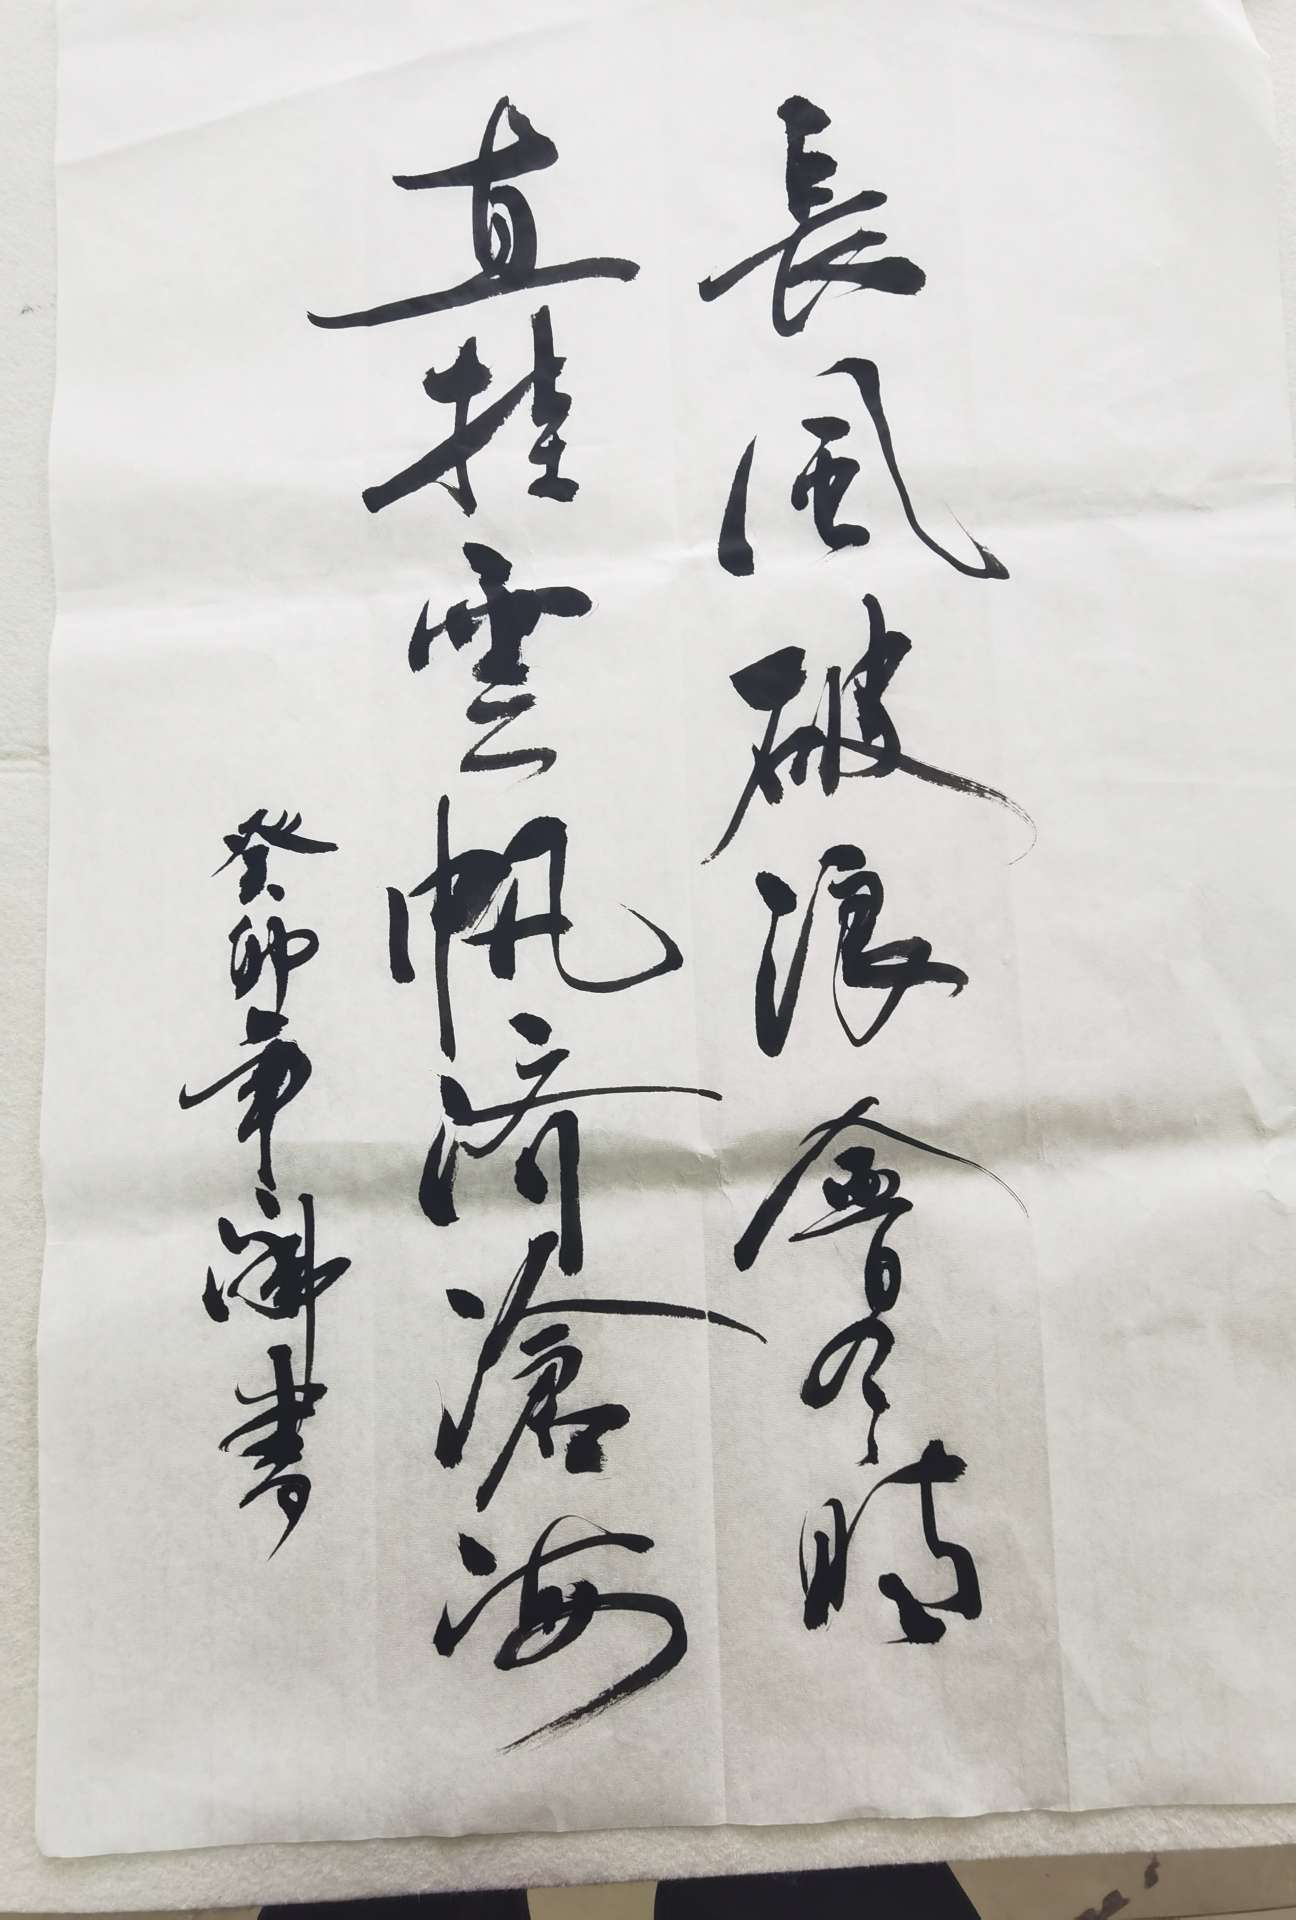 長風破浪會有時
直挂雲帆济滄海
癸卯年海書